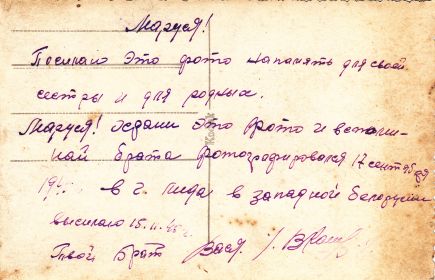 Маруся!
Посилаю это фото напамять для своей
сестры и для родных.
Маруся! Храни это фото и вспоми-
най брата фотографировался 17
19 в г. Лида в западной Белоруссии
высилаю 15.
Твой брат Вася.